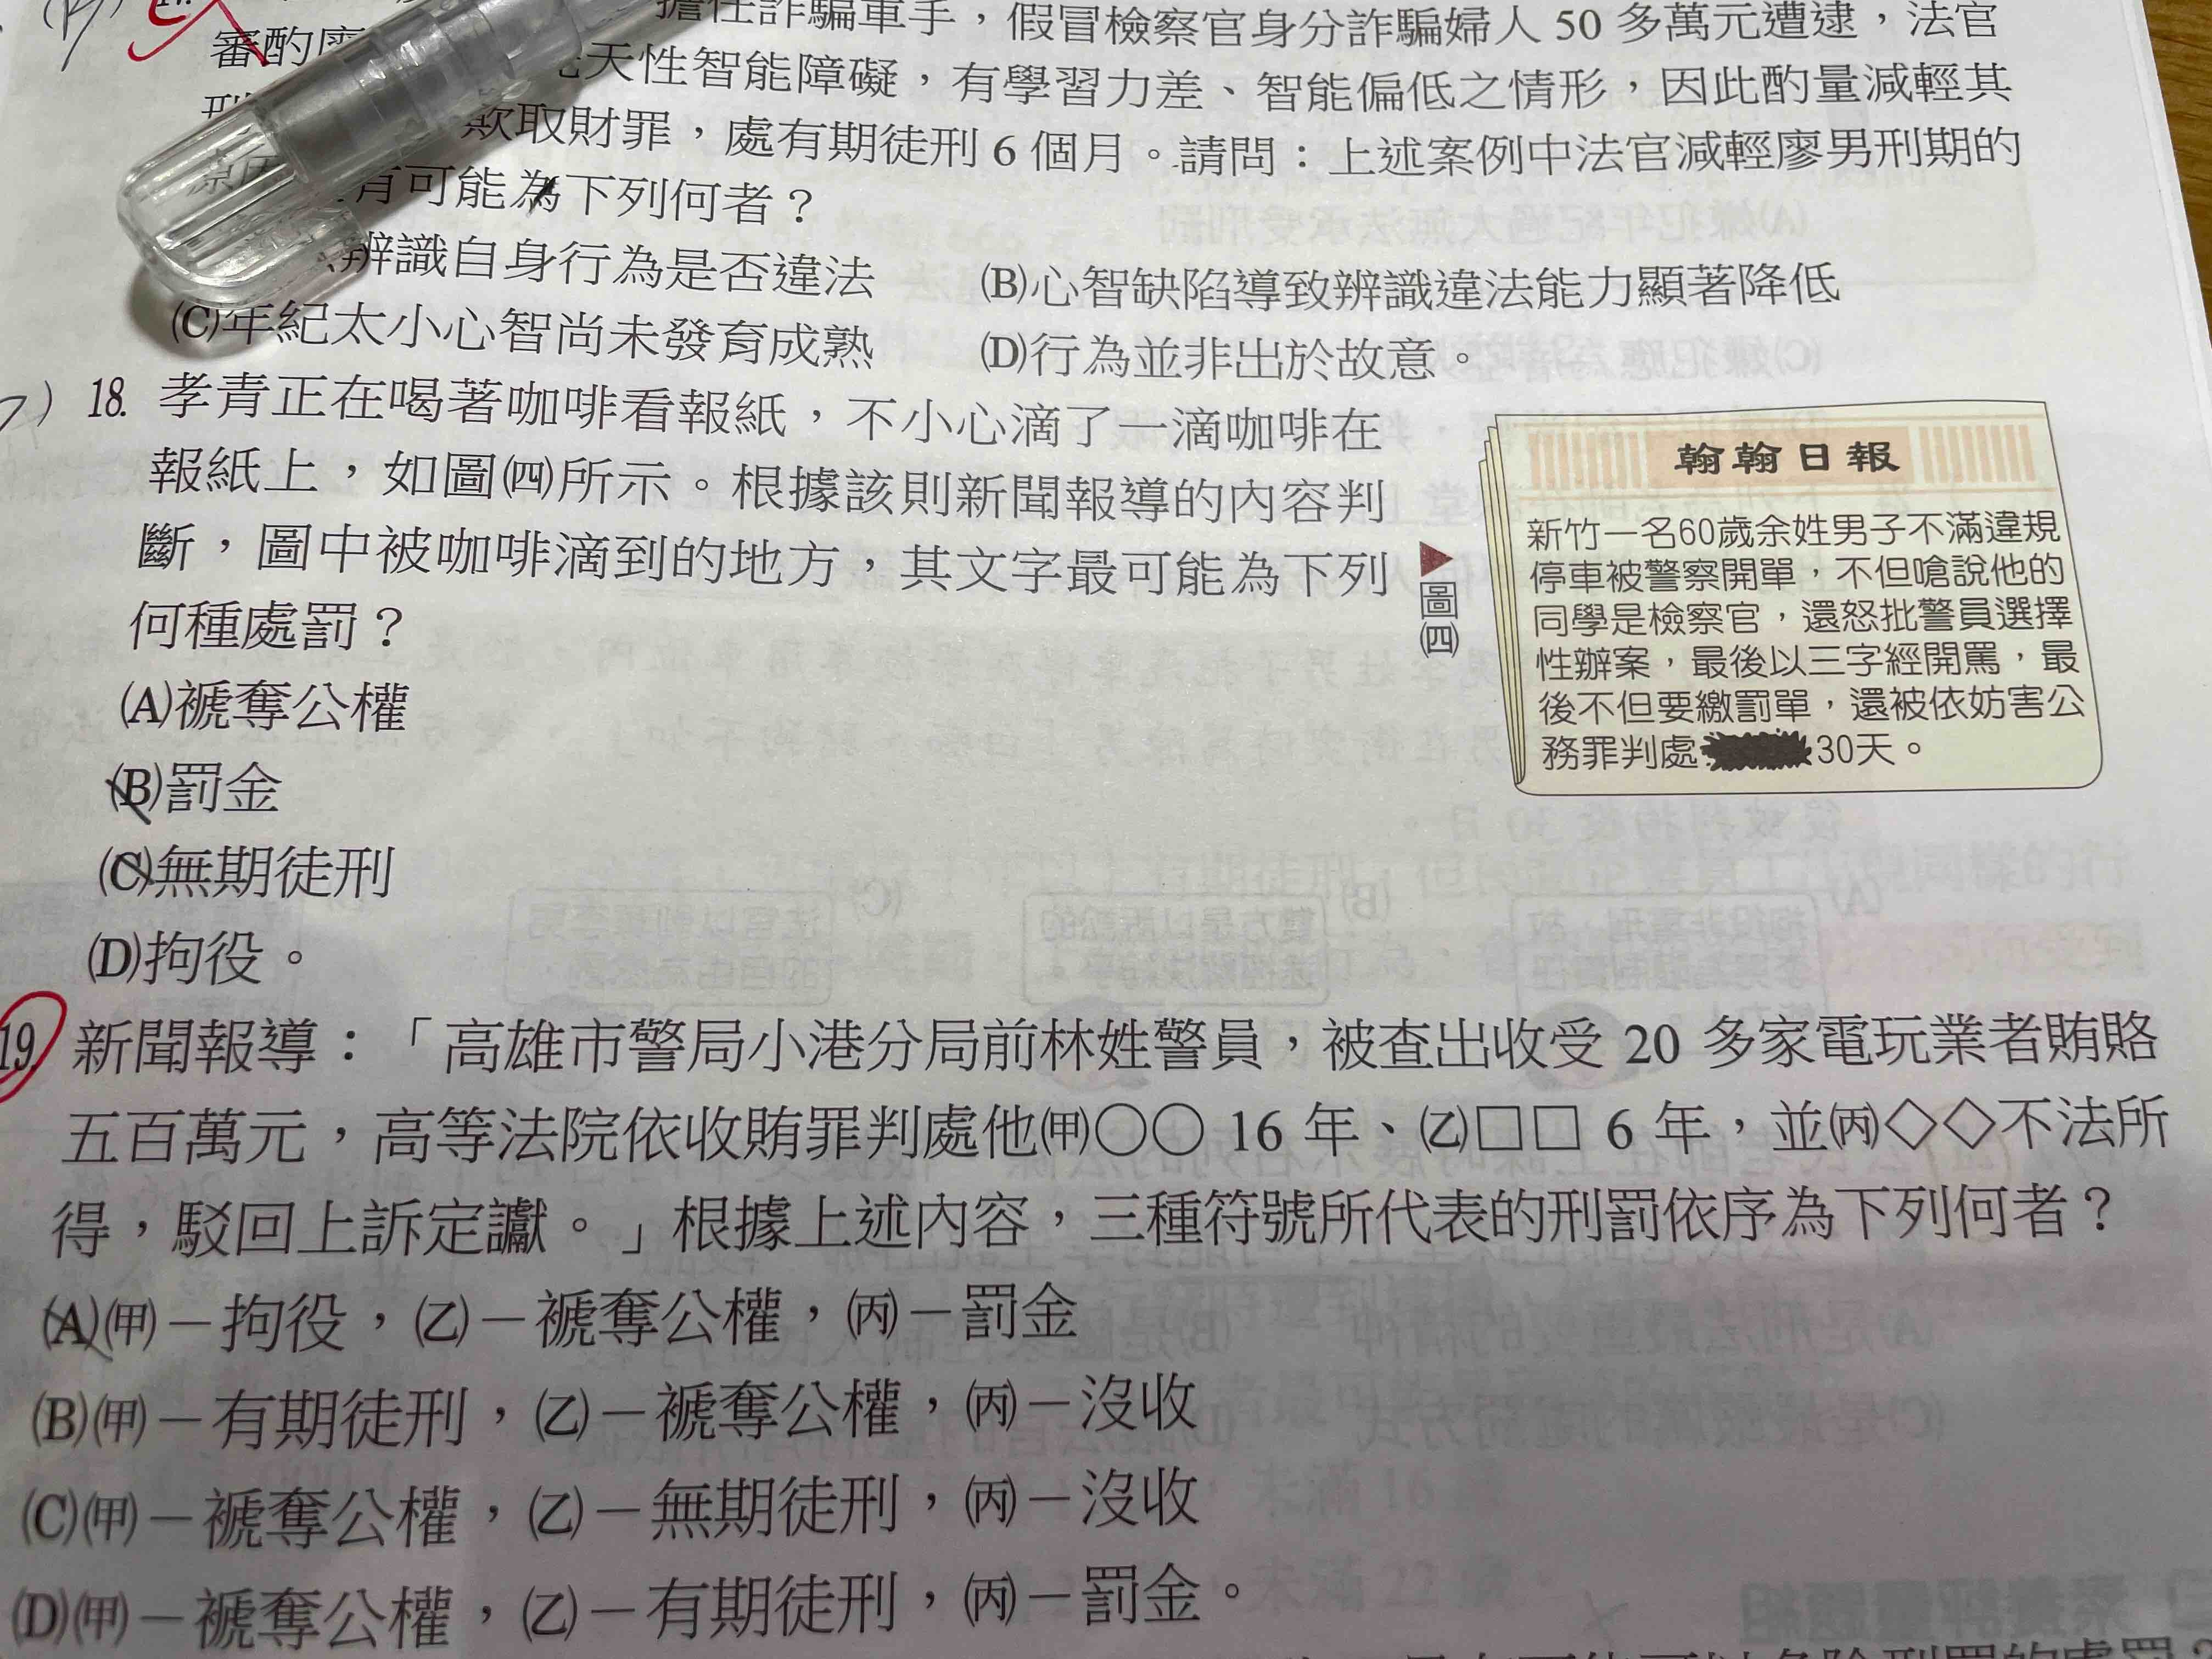 擔任詐騙車手，假冒檢察官身分詐騙婦人 50 多萬元遭逮，法官
審酌
天性智能障礙，有學習力差、智能偏低之情形，因此酌量減輕其
刑
欺取財罪，處有期徒刑 6 個月。請問：上述案例中法官減輕廖男刑期的
有可能為下列何者？
辨識自身行為是否違法 (B)心智缺陷導致辨識違法能力顯著降低
(C)年紀太小心智尚未發育成熟 (D)行為並非出於故意。
18. 孝青正在喝著咖啡看報紙，不小心滴了一滴咖啡在
報紙上，如圖㈣所示。根據該則新聞報導的內容判
斷，圖中被咖啡滴到的地方，其文字最可能為下列
何種處罰？
(A)褫奪公權
(B)罰金
(C)無期徒刑
(D)拘役。
▶圖㈣
翰翰日報
新竹一名60歲余姓男子不滿違規
停車被警察開單，不但嗆說他的
同學是檢察官，還怒批警員選擇
性辦案，最後以三字經開罵，最
後不但要繳罰單，還被依妨害公
務罪判處 30天。
19. 新聞報導：「高雄市警局小港分局前林姓警員，被查出收受 20 多家電玩業者賄賂
五百萬元，高等法院依收賄罪判處他(甲)○○ 16 年、(乙)□□ 6 年，並(丙)◇◇不法所
得，駁回上訴定讞。」根據上述內容，三種符號所代表的刑罰依序為下列何者？
(A)(甲)－拘役，(乙)－褫奪公權，(丙)－罰金
(B)(甲)－有期徒刑，(乙)－褫奪公權，(丙)－沒收
(C)(甲)－褫奪公權，(乙)－無期徒刑，(丙)－沒收
(D)(甲)－褫奪公權，(乙)－有期徒刑，(丙)－罰金。